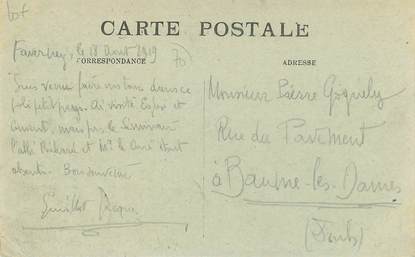 CARTE POSTALE
CORRESPONDANCE
ADRESSE
Faverney, le 18 Août 1919
70
Suis venu faire un tour dans ce
joli petit pays. Ai visité et
mais pas le Séminaire
l'abbé et Mr le Curé étant
absents. Bon souvenir
Guillot
Monsieur Pierre
Rue du Pavement
à Baume-les-Dames
(Doubs)